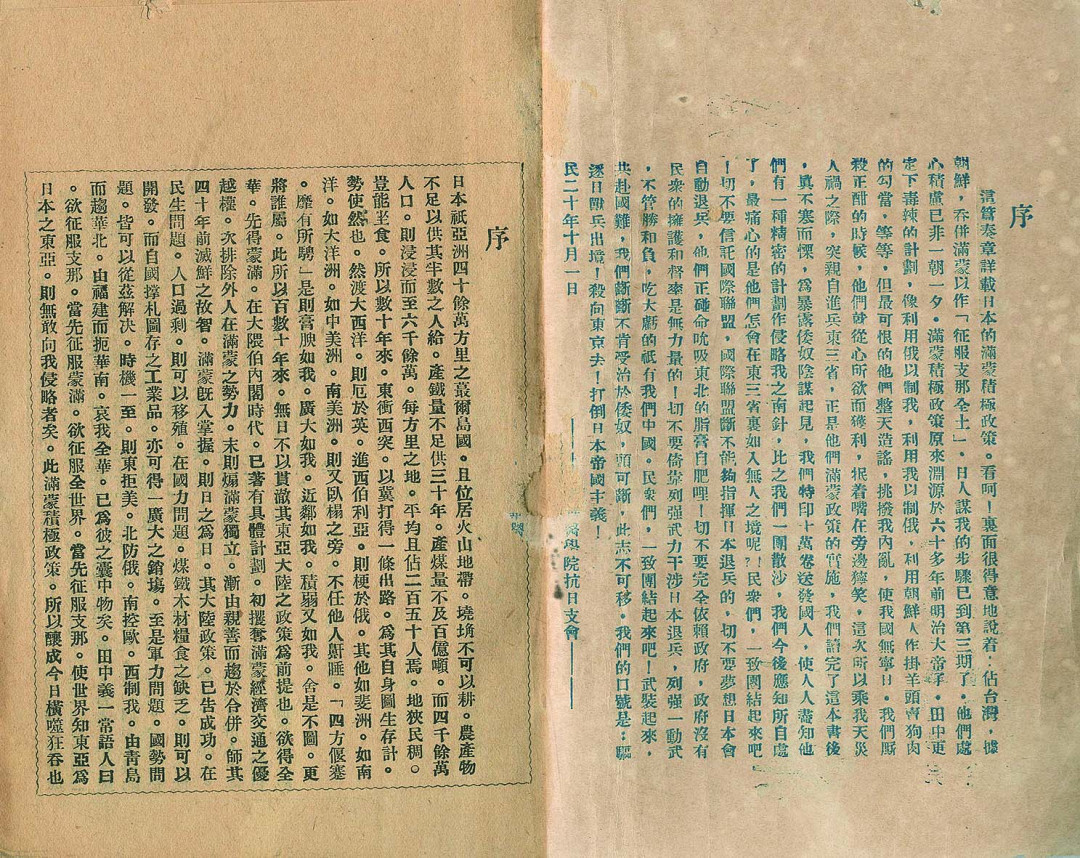 序
言簡奏章詳載日本的滿蒙積極政策。看呵！裏面很得意地說着：佔台灣，據
朝鮮，吞併滿蒙以作「征服支那全土」，日人謀我的步驟已到第三期了。他們處
心積慮已非一朝一夕。滿蒙積極政策原來淵源於六十多年前明治大帝乎。田中更
定下毒辣的計劃，像利用俄以制我，利用我以制俄，利用朝鮮人作掛羊頭賣狗肉
的勾當，等等，但最可恨的他們整天造謠，挑撥我內亂，使我國無寧日。我們厮
殺正酣的時候，他們就從心所欲而獲利，抿着嘴在旁邊獰笑，這次所以乘我天災
人禍之際，突親自進兵東三省，正是他們滿蒙政策的實施，我們讀完了這本書後
，眞不寒而慄，爲暴露倭奴陰謀起見，我們特印十萬卷送發國人，使人人盡知他
們有一種精密的計劃作侵略我之南針，比之我們一團散沙，我們今後應知所自處
了，最痛心的是他們怎會在東三省裏如入無人之境呢？！民衆們，一致團結起來吧
！切不要信託國際聯盟，國際聯盟斷不能夠指揮日本退兵的，切不要夢想日本會
自動退兵，他們正碰命吮吸東北的脂膏自肥哩！切不要完全依賴政府，政府沒有
民衆的擁護和督率是無力量的！切不要倚靠列强武力干涉日本退兵，列强一動武
，不管勝和負，吃大虧的祇有我們中國。民衆們，一致團結起來吧！武裝起來，
共赴國難，我們斷斷不肯受治於倭奴，頭可斷，此志不可移。我們的口號是：驅
逐日獸兵出境！殺向東京去！打倒日本帝國主義！
醫學院抗日支會
民二十年十月一日
序
日本祇亞洲四十餘萬方里之蕞爾島國。且位居火山地帶。墝埆不可以耕。農產物
不足以供其半數之人給。產鐵量不足供三十年。產煤量不及百億噸。而四千餘萬
人口。則浸浸而至六千餘萬。每方里之地。平均且佔二百五十人焉。地狹民稠。
豈能至食。所以數十年來。東衝西突。以冀打得一條出路。爲其自身圖生存計。
勢使然也。然渡大西洋。則厄於英。進西伯利亞。則梗於俄。其他如斐洲。如南
洋。如大洋洲。如中美洲。南美洲。則又臥榻之旁。不任他人鼾睡。「四方偃蹇
。靡有所騁」是則膏腴如我。廣大如我。近鄰如我。積弱又如我。舍是不圖。更
將誰屬。此所以百數十年來。無日不以貫澈其東亞大陸之政策爲前提也。欲得全
華。先得蒙滿。在大隈伯內閣時代。已著有具體計劃。初攫奪滿蒙經濟交通之優
越權。次排除外人在滿蒙之勢力。末則煽滿蒙獨立。漸由親善而趨於合併。師其
四十年前滅鮮之故智。滿蒙旣入掌握。則日之爲日。其大陸政策。已告成功。在
民生問題。人口過剩。則可以移殖。在國力問題。煤鐵木材糧食之缺乏。則可以
開發。而自國撐札圖存之工業品。亦可得一廣大之銷塲。至是軍力問題。國勢問
題。皆可以從茲解决。時機一至。則東拒美。北防俄。南控歐。西制我。由靑島
而趨華北。由福建而扼華南。哀我全華。已爲彼之囊中物矣。田中義一常語人曰
。欲征服支那。當先征服蒙滿。欲征服全世界。當先征服支那。使世界知東亞爲
日本之東亞。則無敢向我侵略者矣。此滿蒙積極政策。所以釀成今日橫噬狂吞也